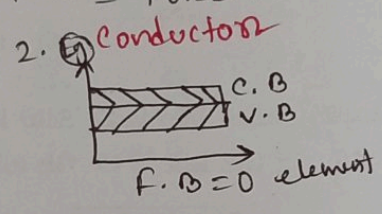 2. Eg Conductor
C.B
V.B
F.B=0 element